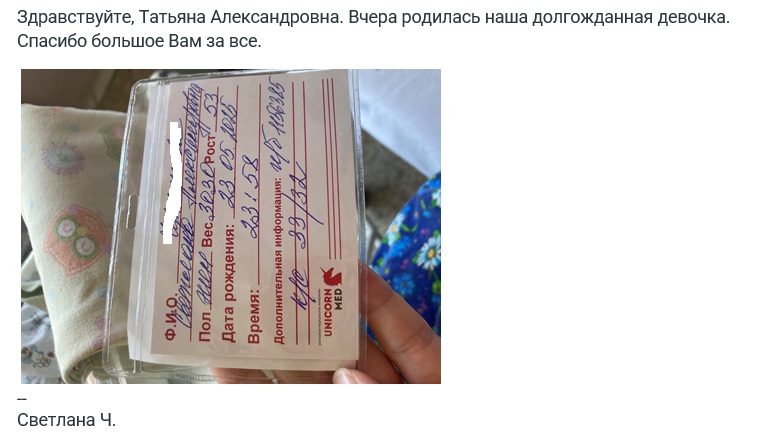 Здравствуйте, Татьяна Александровна. Вчера родилась наша долгожданная девочка.
Спасибо большое Вам за все.
Ф.И.О. Светлана Александровна
Пол жен Вес 3030 Рост 53
Дата рождения: 23 05 2025
Время: 23:58
Дополнительная информация: и/б
к/о 33/32
UNICORN
MED
--
Светлана Ч.